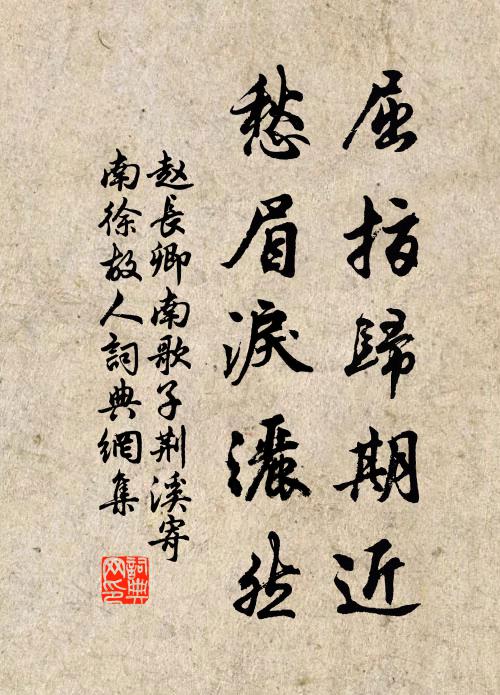 屈指歸期近
愁眉淚灑然
赵長卿南歌子荆溪寄
南徐故人詞典網集
詞典网印